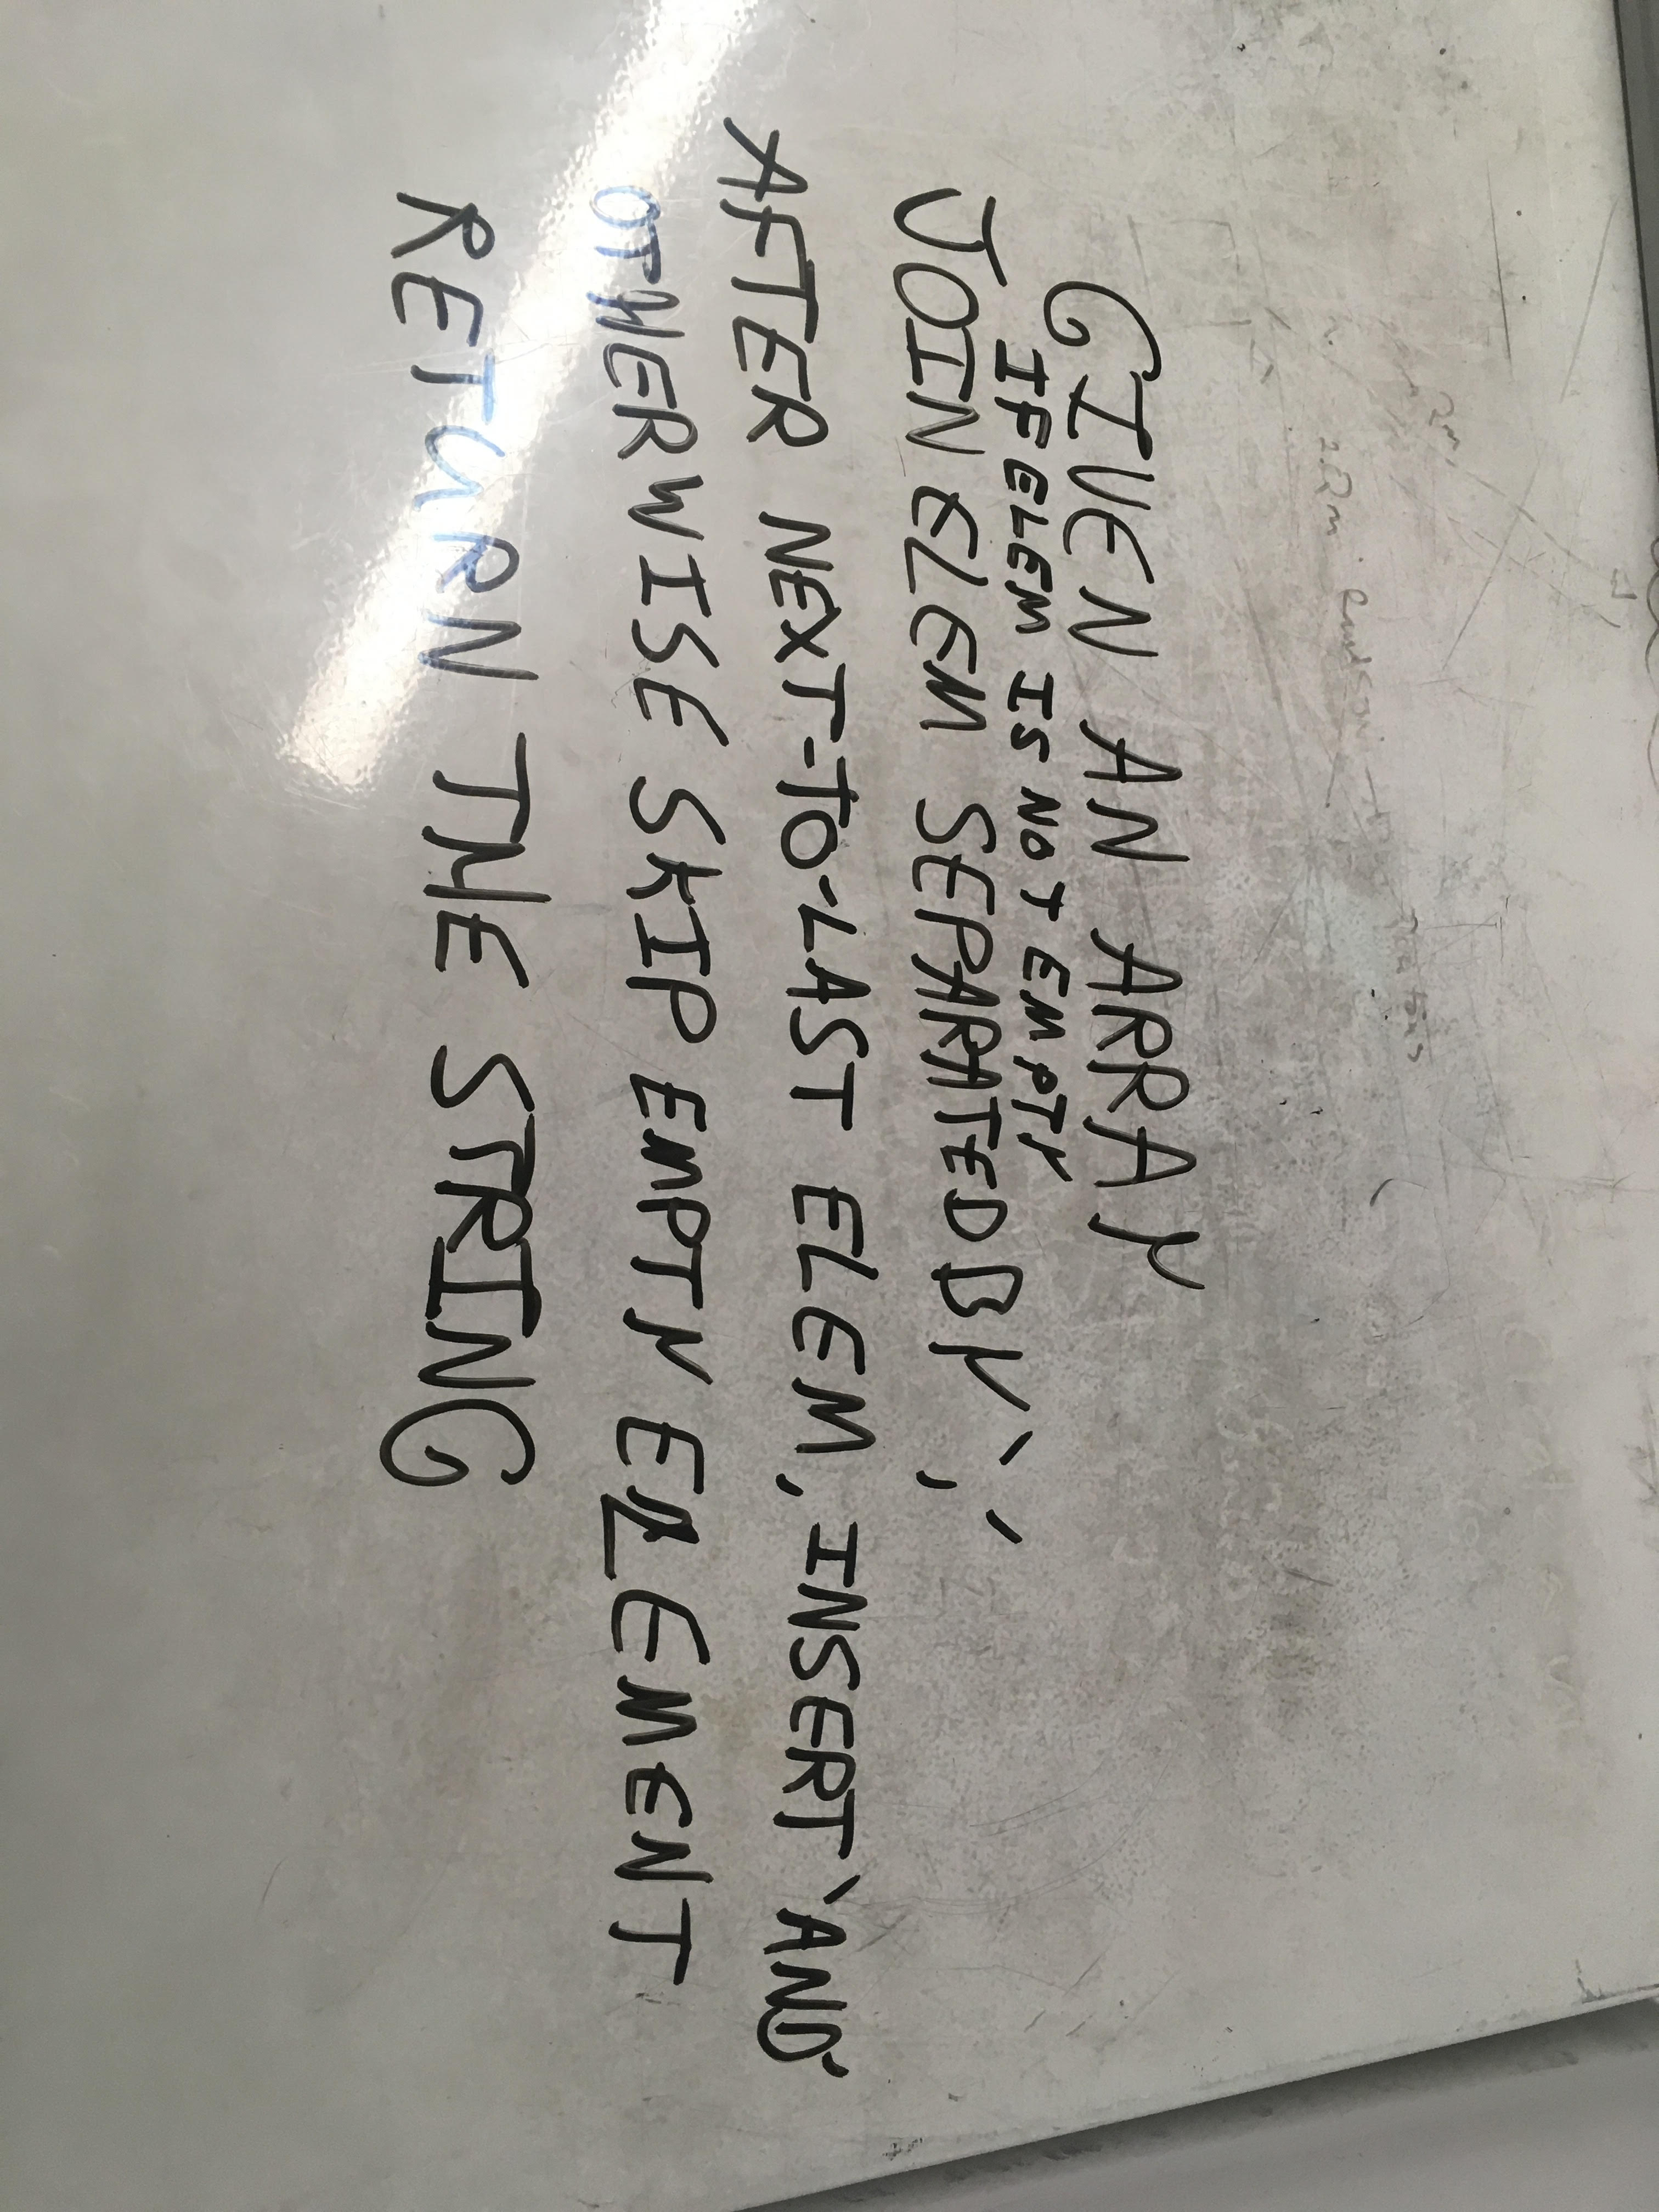 GIVEN AN ARRAY
IF ELEM IS NOT EMPTY
JOIN ELEM SEPARATED BY ‵,′
AFTER NEXT-TO-LAST ELEM, INSERT ‵AND′
OTHERWISE SKIP EMPTY ELEMENT
RETURN THE STRING